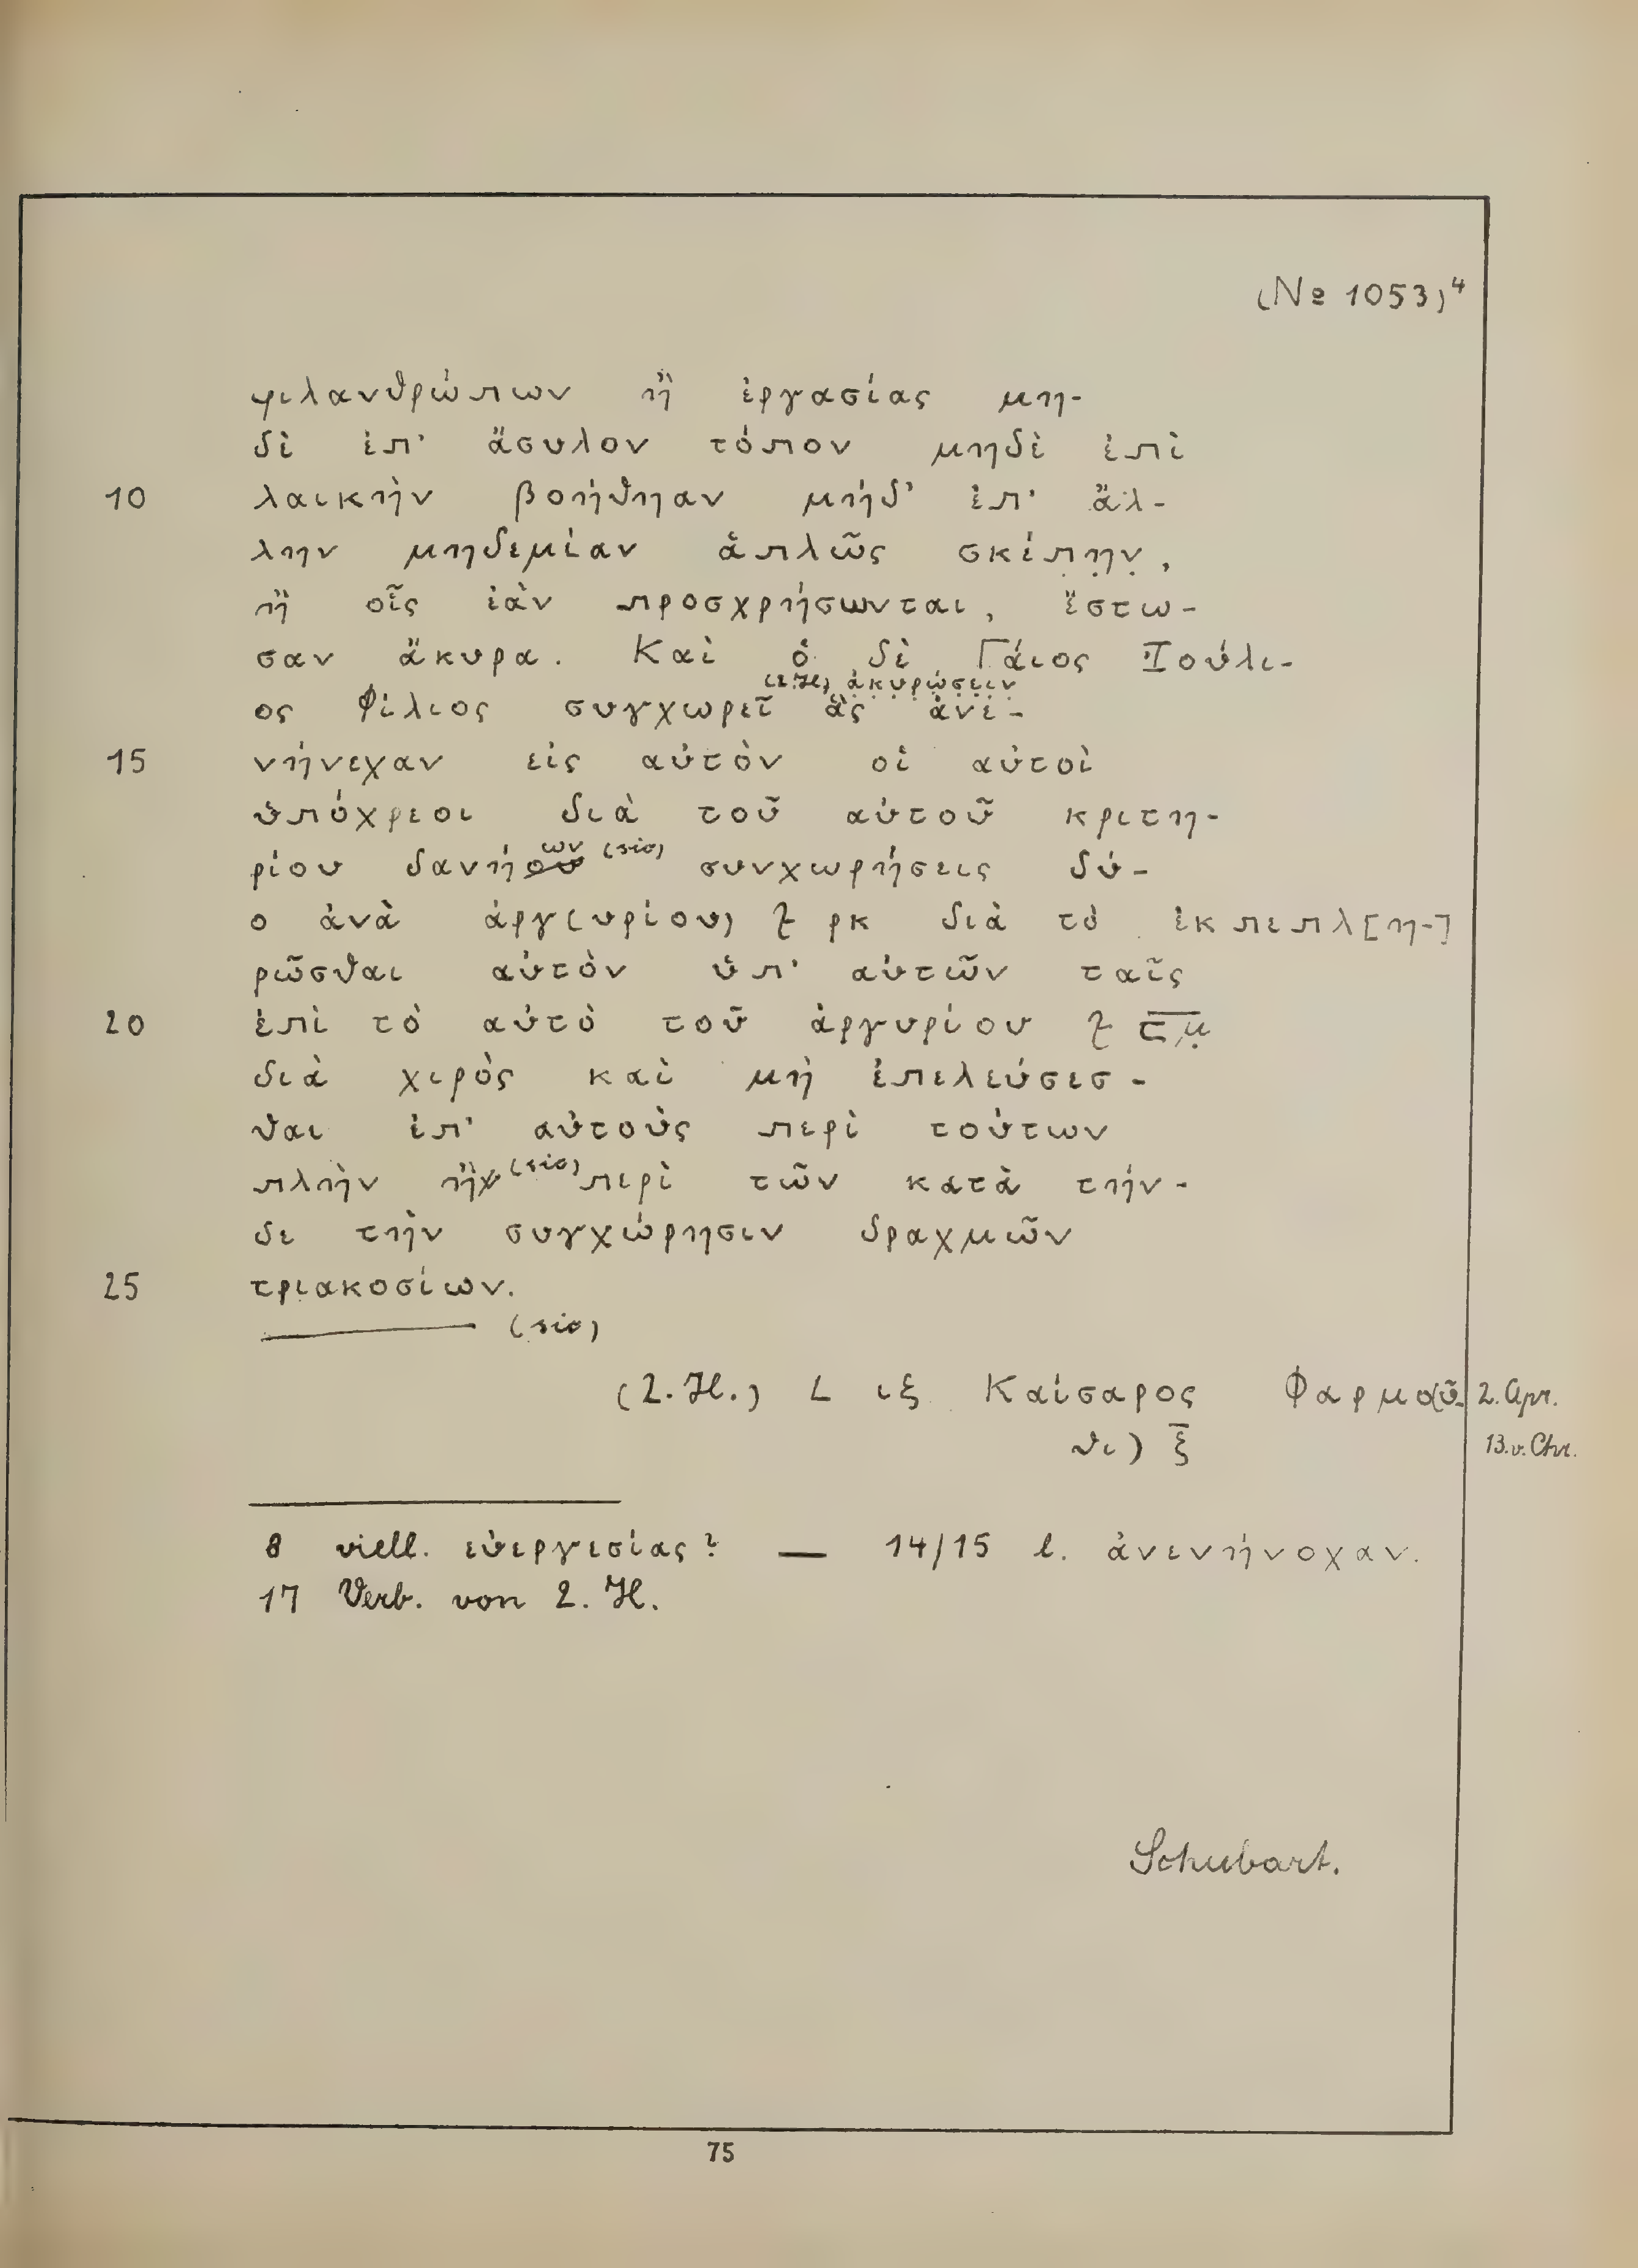 (No 1053)⁴
φιλανθρώπων ἢ ἐργασίας μη-
δὲ ἐπ' ἄσυλον τόπον μηδὲ ἐπὶ
10 λαικὴν βοήθηαν μήδ' ἐπ' ἄλ-
λην μηδεμίαν ἁπλῶς σκέπ̣η̣ν̣,
ἢ οἷς ἐὰν προσχρήσωνται, ἔστω-
σαν ἄκυρα. Καὶ ὁ δὲ Γάιος Ἰούλι-
(2.H.) ἀ̣κ̣υ̣ρ̣ώ̣σ̣ε̣ι̣ν̣
ος Φίλιος συγχωρεῖ ἃς ἀνε-
15 νήνεχαν εἰς αὐτὸν οἱ αὐτοὶ
ὑπόχρεοι διὰ τοῦ αὐτοῦ κριτη-
ων (sic)
ρίου δανήου συνχωρήσεις δύ-
ο ἀνὰ ἀργ(υρίου) ⟅ ρκ διὰ τὸ ἐκπεπλ[η-]
ρῶσθαι αὐτὸν ὑπ' αὐτῶν ταῖς
20 ἐπὶ τὸ αὐτὸ τοῦ ἀργυρίου ⟅ σ̅μ̣̅
διὰ χιρὸς καὶ μὴ ἐπελεύσεσ-
θαι ἐπ' αὐτοὺς περὶ τούτων
πλὴν ἢχ (sic) περὶ τῶν κατὰ τήν-
δε τὴν συγχώρησιν δραχμῶν
25 τριακοσίων.
(sic)
(2.H.) L ιξ Καίσαρος Φαρμο(ῦ- 2. Apr.
θι) ξ̅ 13. v. Chr.
8 viell. εὐεργεσίας? — 14/15 l. ἀνενήνοχαν.
17 Verb. von 2. H.
Schubart.
75